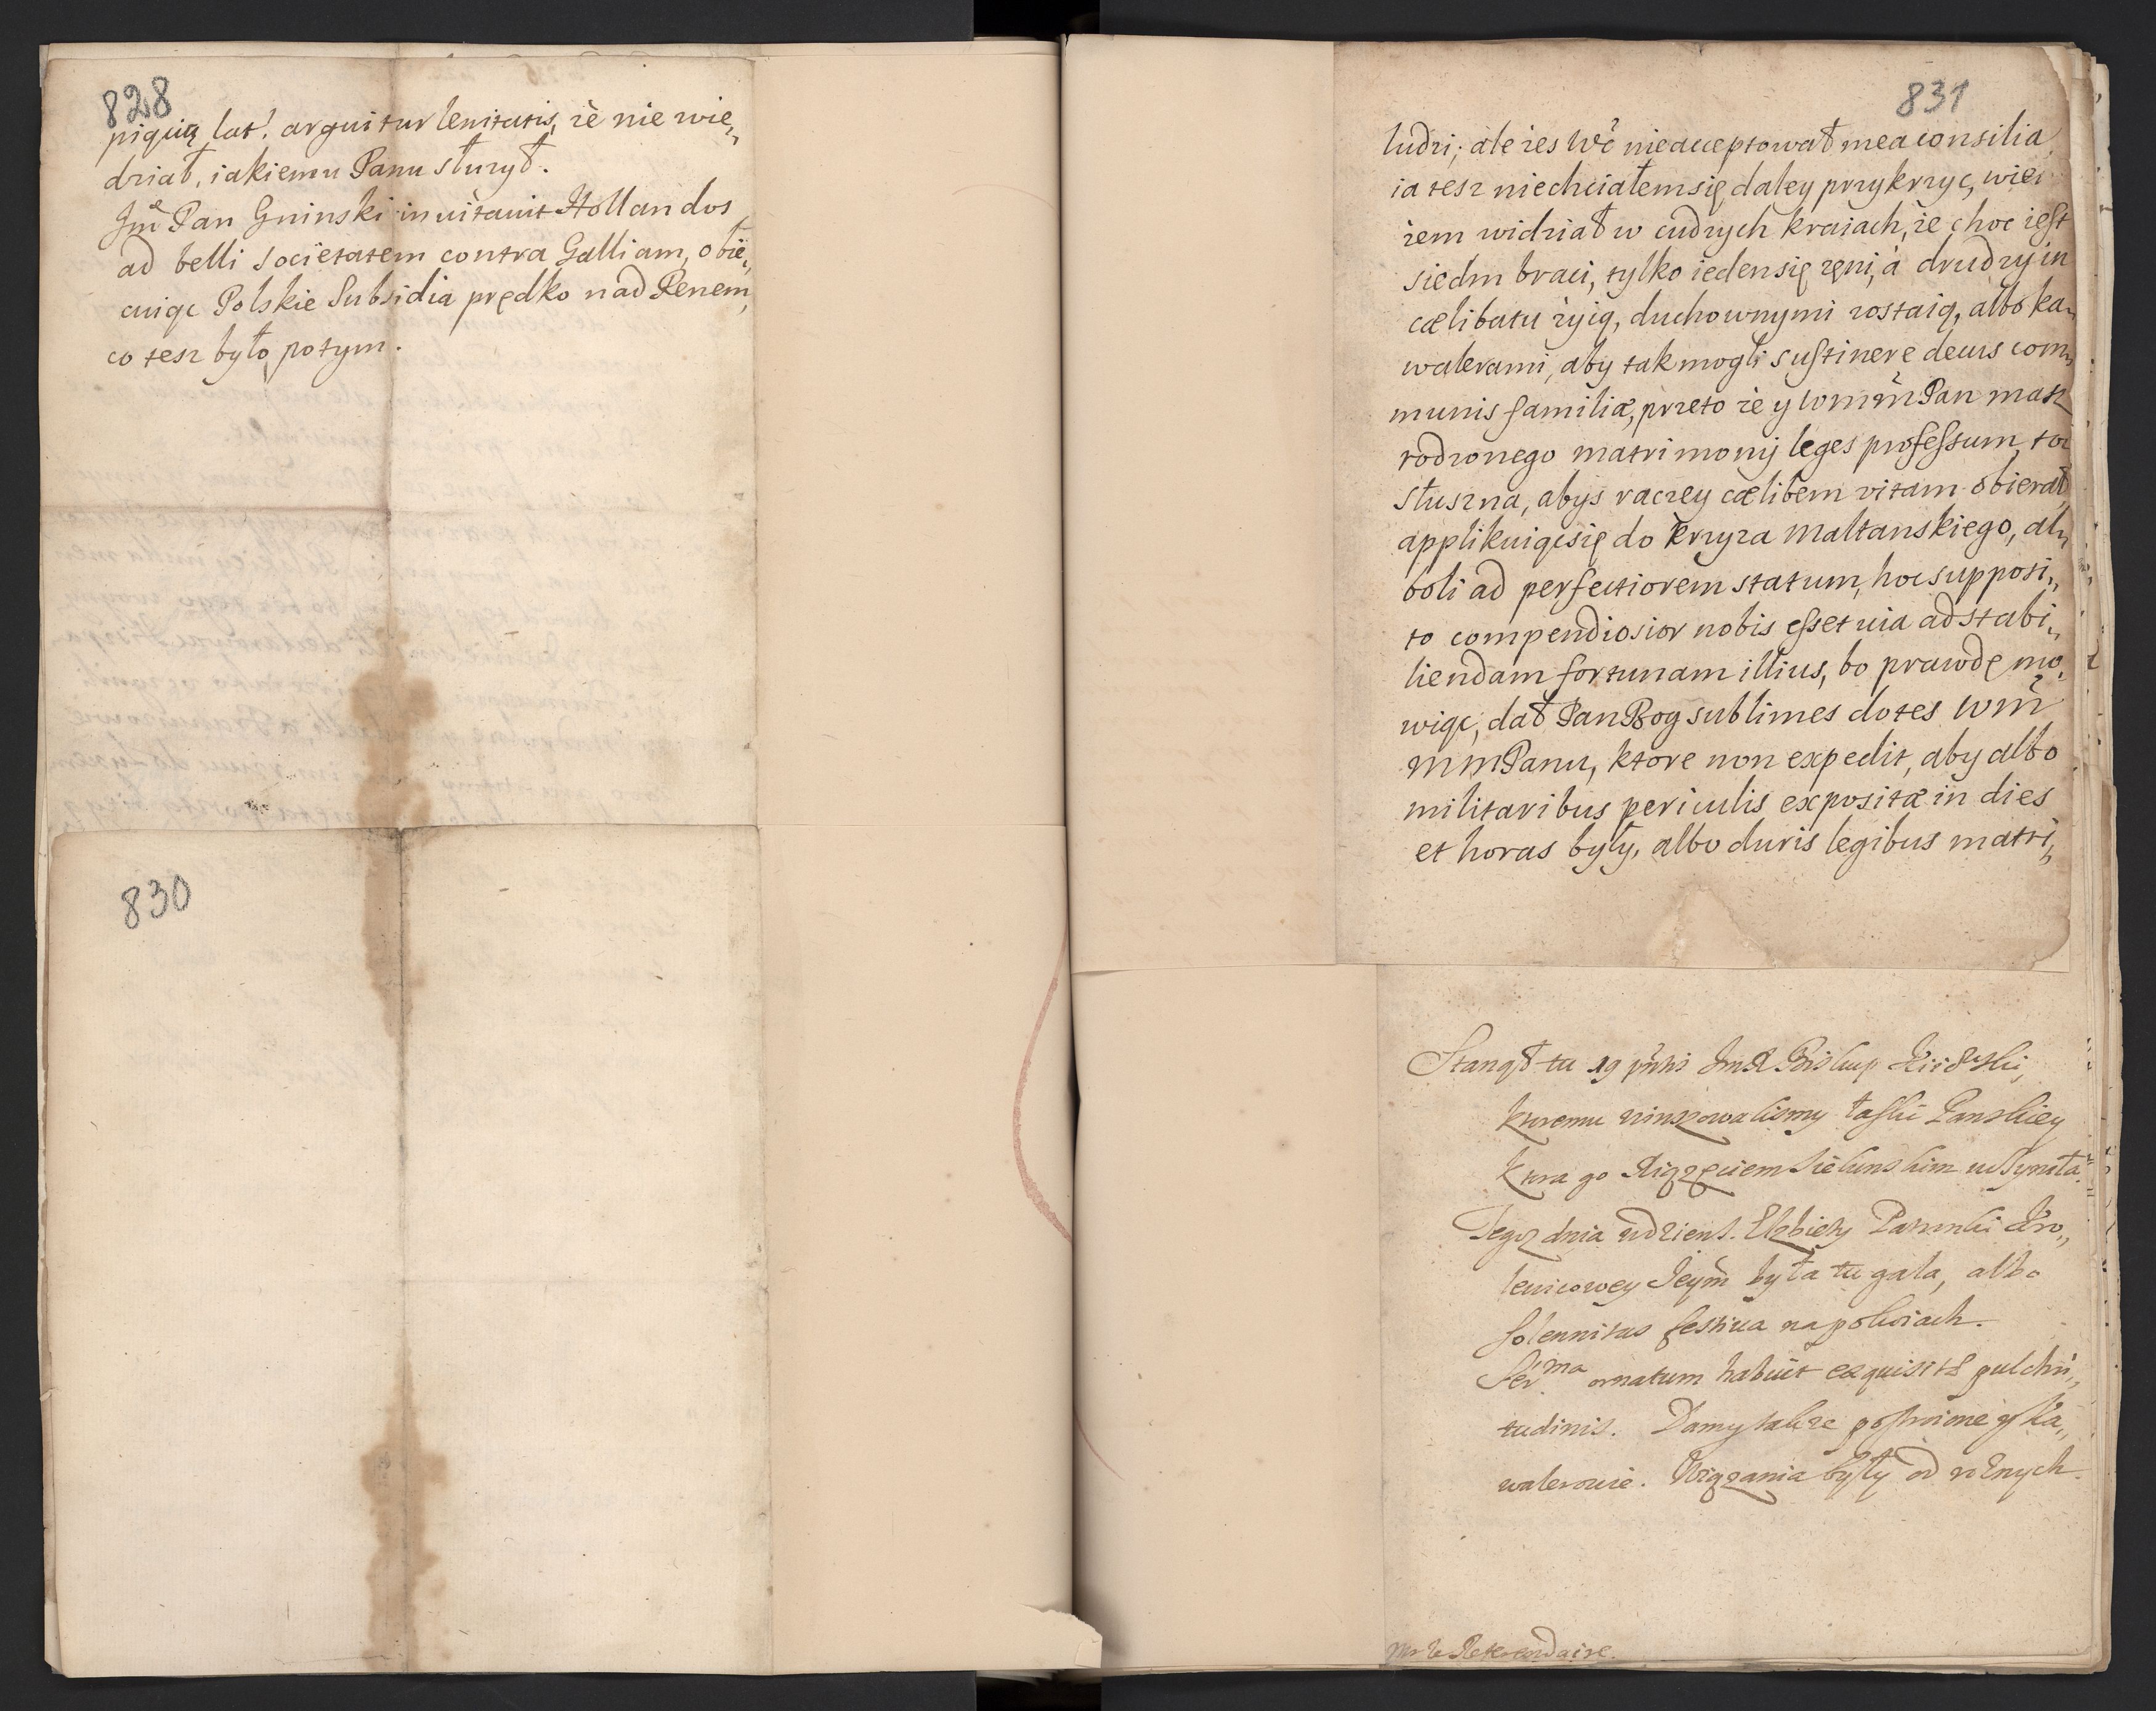 828
piącią lat. arguitur lenitatis, że nie wie„
dział, iakiemu Panu służył.
Jm̃ Pan Gninski inuitauit Hollandos
ad belli societatem contra Galliam, obie„
cuiąc Polskie Subsidia prędko nad Renem,
co tesz było potym.
830
831
ludzi; ale żeś Wć nieacceptował mea consilia,
ia tesz niechciałem się daley przykrzyc, wiei
żem widział w cudzych kraiach, że choc iest
siedm braci, tylko ieden się żęni, a drudzy in
cælibatu żyią, duchownymi zostaią, albo ka„
walerami, aby tak mogli sustinere decus com„
munis familiæ, przeto że y Wm̃m̃ Pan masz
rodzonego matrimonij leges professum, toć
słuszna, abyś raczey cælibem vitam obierał,
applikuiąc się do krzyża Maltanskiego, al„
boli ad perfectiorem statum, hoc supposi„
to compendiosior nobis esset uia ad stabi„
liendam fortunam illius, bo prawdę mo„
wiąc, dał Pan Bog sublimes dotes Wm̃
MmPanu, ktore non expedit, aby albo
militaribus periculis expositæ in dies
et horas były, albo duris legibus matri„
Stanął tu 19 pñtis JmX Biskup Kiiowski,
ktoremu winszowalismy łaski Panskiey
ktora go Xiążęciem Sielunskim uczyniła.
Tegoż dnia w dzien S. Elzbiety Patronki Kro„
lewicowey Jeym̃ była tu gala, albo
solennitas festiua na pokoiach.
Ser.ma ornatum habuit exquisitæ pulchri„
tudinis. Damy także postroione y Ka„
walerowie. Wiązania były od rożnych
Mr le Referendaire.